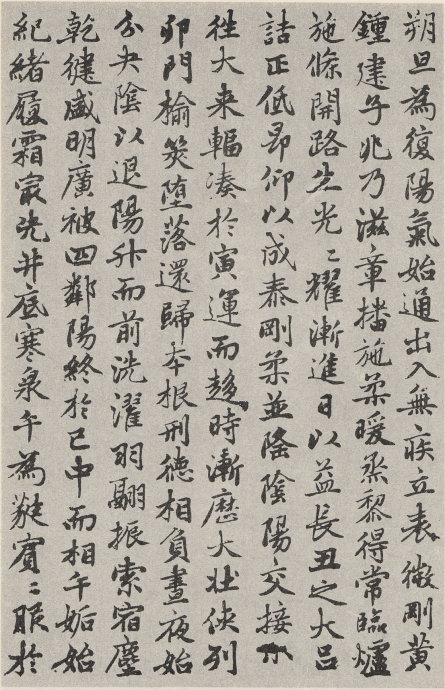 朔旦為復陽氣始通出入無疾立表微剛黃
鍾建子兆乃滋章播施柔暖烝黎得常臨爐
施條開路生光〻耀漸進日以益長丑之大呂
詰正低昂仰以成泰剛柔並隆陰陽交接小
往大来輻湊於寅運而趍時漸歷大壯俠列
卯門榆莢堕落還歸本根刑德相負晝夜始
分夬陰以退陽升而前洗濯羽翮振索宿塵
乾健盛明廣被四鄰陽終於巳中而相午姤始
紀緒履霜最先井底寒泉午為蕤賓〻服於